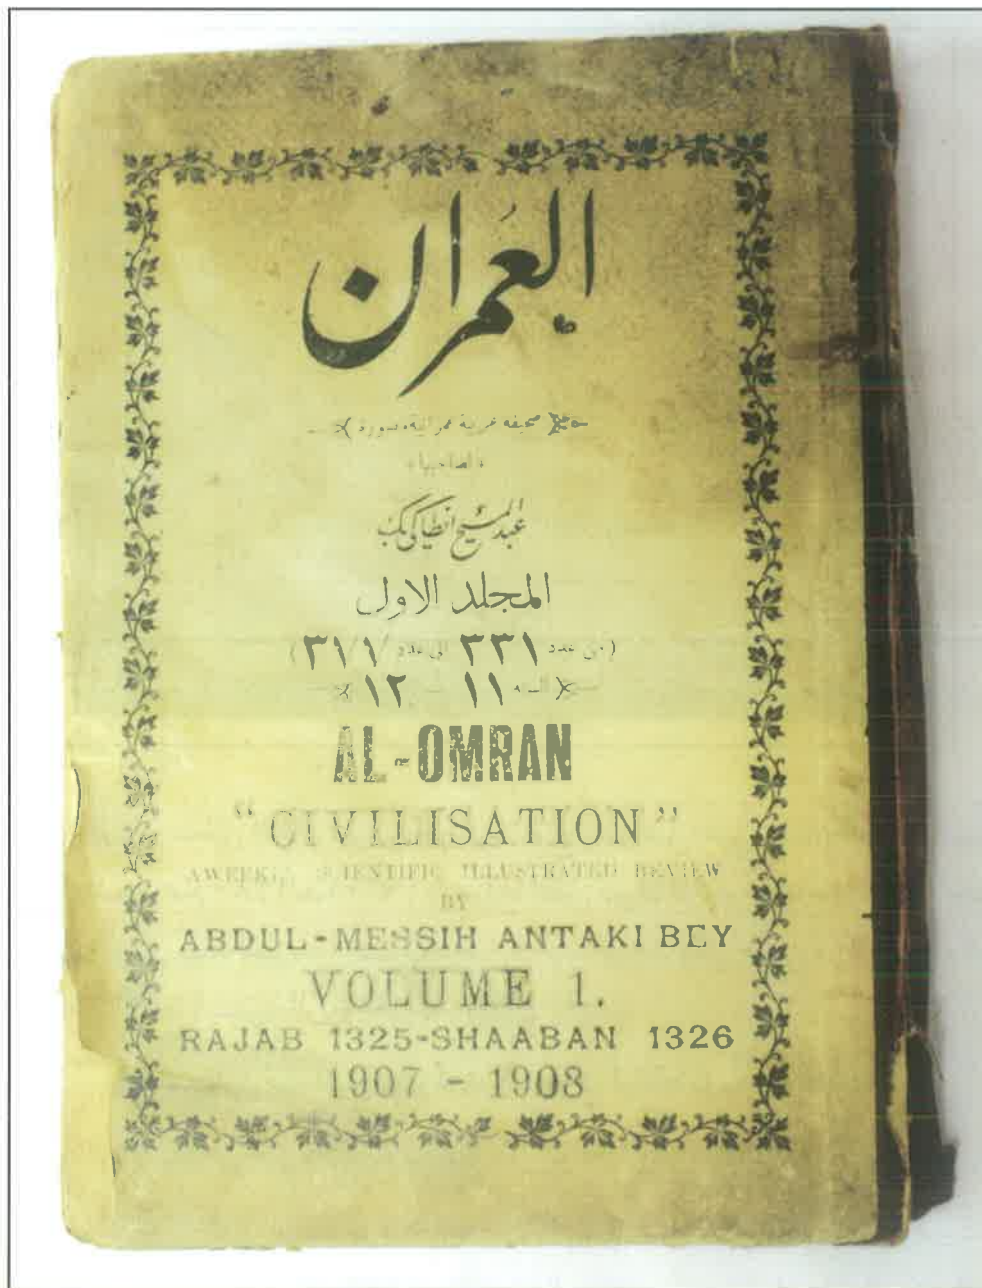 العُمران
صحيفة عربية عمرانية مصورة
لصاحبها
عبد المسيح انطاكي بك
المجلد الاول
(من عدد ٣٣١ الى عدد
١١ - ١٢
AL-OMRAN
"CIVILISATION"
A WEEKLY SCIENTIFIC ILLUSTRATED REVIEW
BY
ABDUL-MESSIH ANTAKI BEY
VOLUME 1.
RAJAB 1325-SHAABAN 1326
1907 - 1908